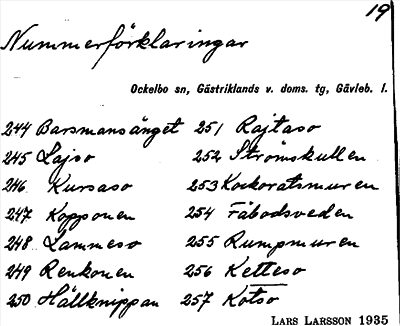 19
Nummerförklaringar
Ockelbo sn, Gästriklands v. doms. tg, Gävleb. l.
244 Barsmansänget 251 Rajtaso
245 Lajso 252 Strömskullen
246 Kursaso 253 Kockoratsmuren
247 Kopponen 254 Fäbodsveden
248 Lammeso 255 Rumpmuren
249 Renkonen 256 Ketteso
250 Hällknippan 257 Kotso
LARS LARSSON 1935